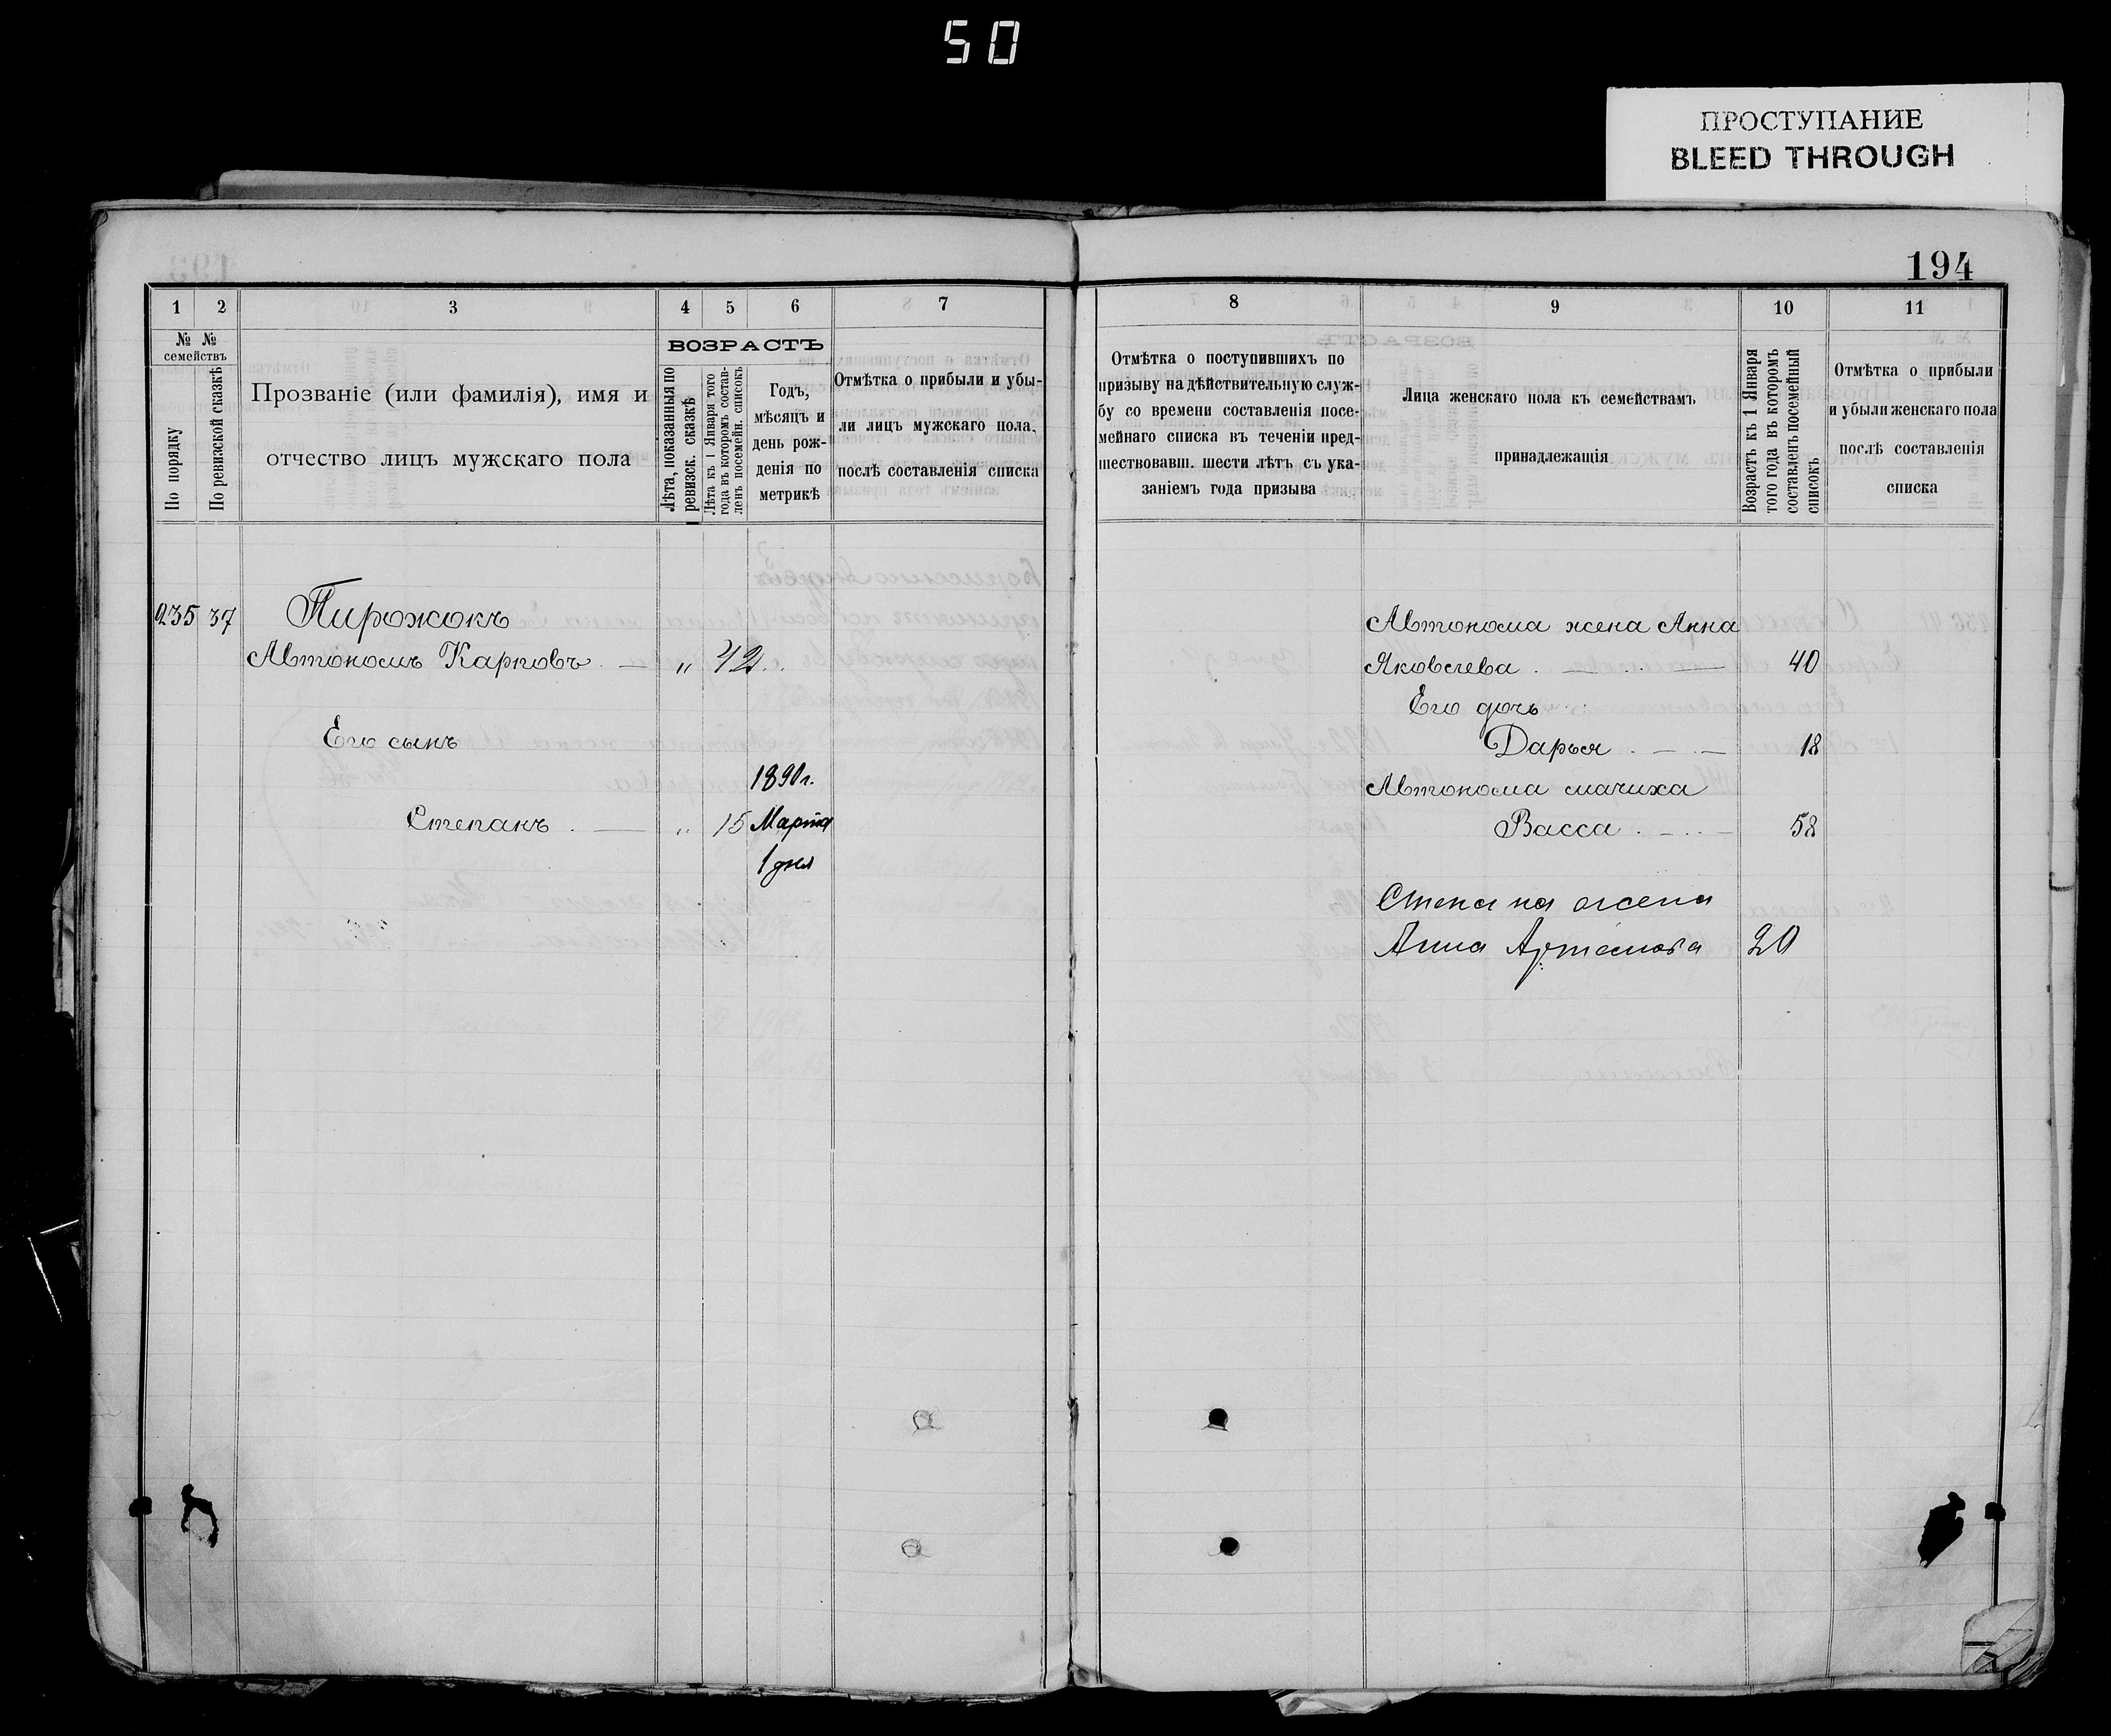 50
ПРОСТУПАНИЕ
BLEED THROUGH
194
1 2 3 4 5 6 7
№ № семействъ
По порядку
По ревизской сказкѣ
Прозваніе (или фамилія), имя и
отчество лицъ мужскаго пола
ВОЗРАСТЪ
Лѣта, показанныя по
ревизск. сказкѣ
Лѣта къ 1 Января того
года въ которомъ состав-
ленъ посемейн. списокъ
Годъ,
мѣсяцъ и
день рож-
денія по
метрикѣ
Отмѣтка о прибыли и убы-
ли лицъ мужскаго пола,
послѣ составленія списка
235 37 Пирожокъ
Автономъ Карповъ — „ 42
Его сынъ
1890 г.
Степанъ — „ 15 Марта
1 дня
8 9 10 11
Отмѣтка о поступившихъ по
призыву на дѣйствительную служ-
бу со времени составленія посе-
мейнаго списка въ теченіи пред-
шествовавш. шести лѣтъ съ ука-
заніемъ года призыва
Лица женскаго пола къ семействамъ
принадлежащія
Возрастъ къ 1 Января
того года въ которомъ
составленъ посемейный
списокъ
Отмѣтка о прибыли
и убыли женскаго пола
послѣ составленія
списка
Автонома жена Анна
Яковлева — 40
Его дочь
Дарья — 18
Автонома мачиха
Васса — 58
Степана жена
Анна Артемова 20